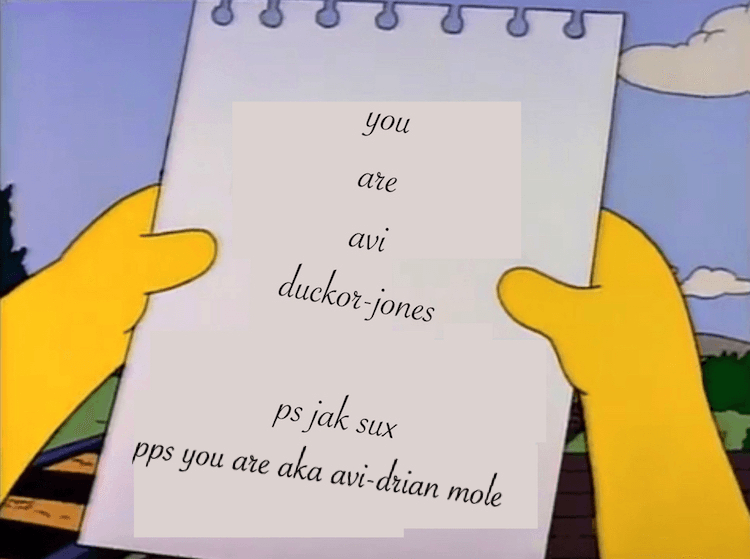 you
are
avi
duckor-jones
ps jak sux
pps you are aka avi-drian mole